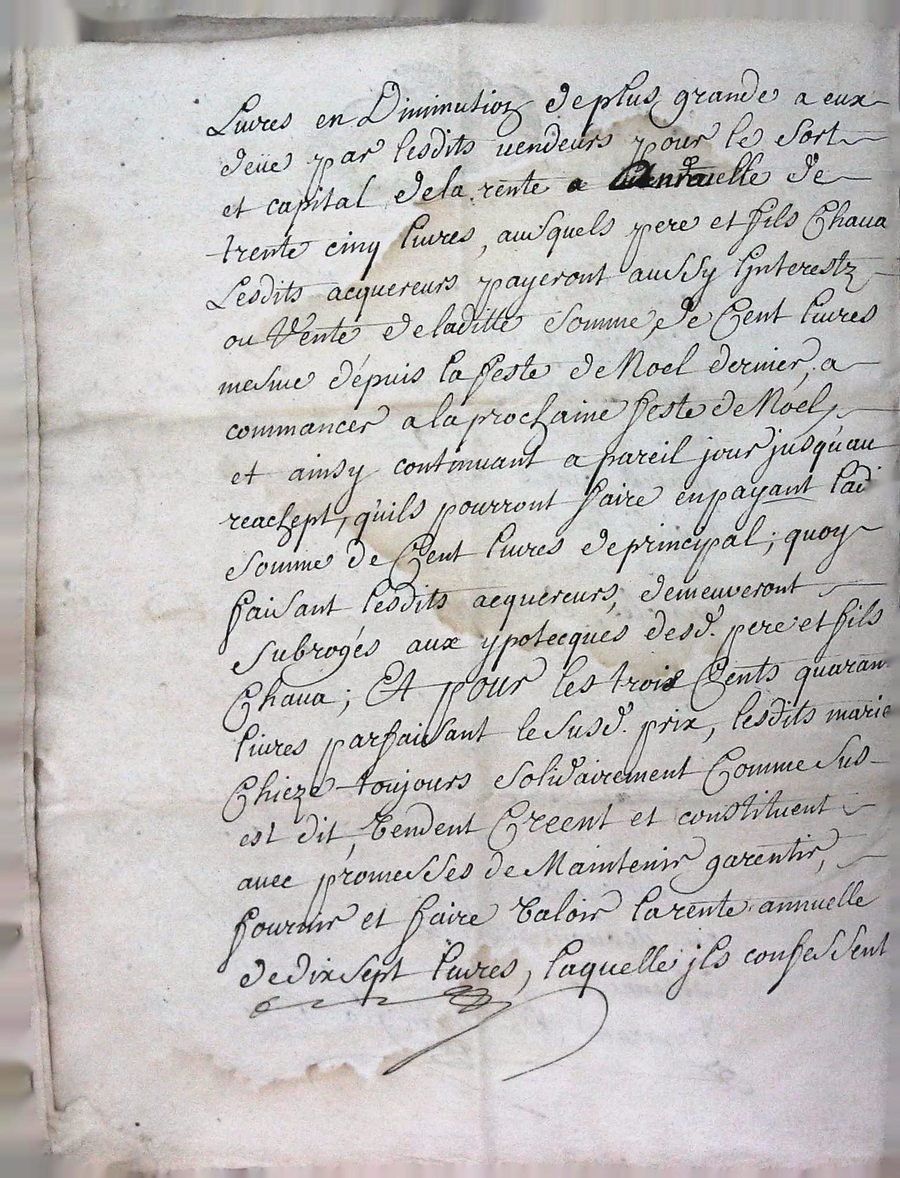 Livres en Diminution de plus grande a eux
deüe par lesdits vendeurs pour le Sort
et capital de la rente a Annuelle de
trente cinq livres, ausquels pere et fils Chaua
Lesdits acquereurs payeront aussy Linterestz
ou Vente de laditte Somme de Cent livres
mesme dépuis la feste de Noel dernier, a
commancer a la prochaine feste de Noel,
et ainsy continuant a pareil jour jusqu'au
reachept, qu'ils pourront faire en payant lad
Somme de Cent livres de principal; quoy
faisant lesdits acquereurs, demeuveront
Subrogés aux ypotecques desd. pere et fils
Chaua; Et pour les trois Cents quaran
livres parfaisant le Susd. prix, lesdits marie
Chieze toujours Solidairement Comme Sus
est dit, Vendent Creent et constituent
avec promesses de Maintenir garentir,
fournir et faire Valoir la rente annuelle
de dix sept livres, laquelle jls confessent